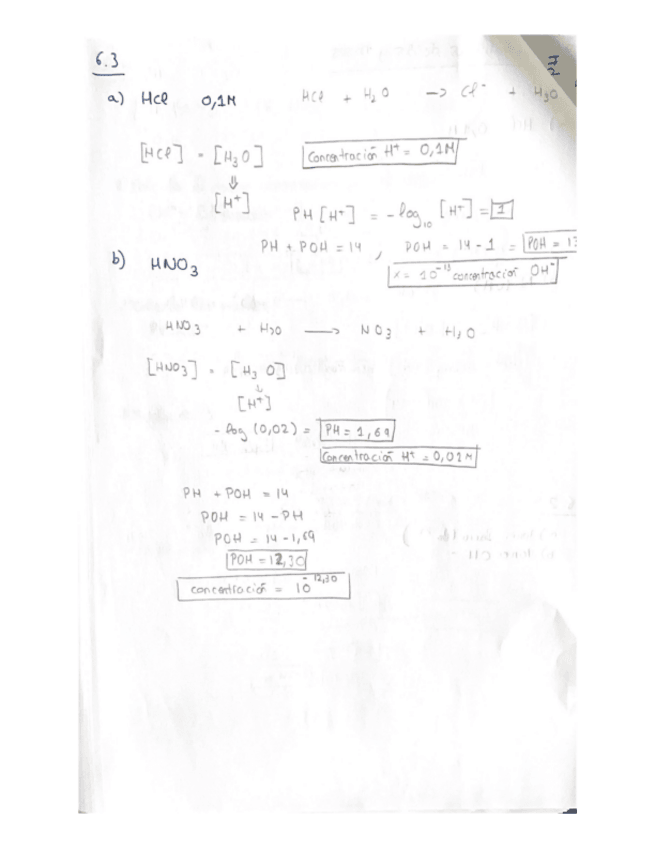 6.3
a) HCl 0,1M HCl + H₂O → Cl⁻ + H₃O
[HCl] = [H₃O] Concentración H⁺ = 0,1M
⇓
[H⁺]
PH [H⁺] = -log₁₀ [H⁺] = 1
PH + POH = 14 , POH = 14 - 1 = POH = 13
x = 10⁻¹³ concentración OH⁻
b) HNO₃
HNO₃ + H₂O → NO₃ + H₃O
[HNO₃] = [H₃O]
↓
[H⁺]
-log (0,02) = PH = 1,69
Concentración H⁺ = 0,02M
PH + POH = 14
POH = 14 - PH
POH = 14 - 1,69
POH = 12,30
concentración = 10⁻¹²,³⁰